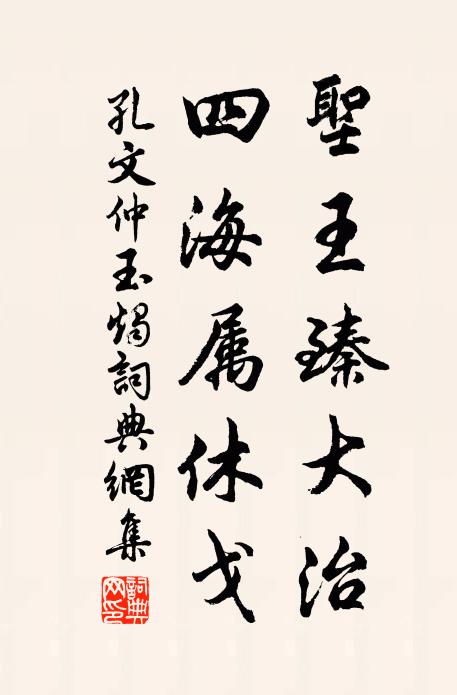 聖王臻大治
四海属休戈
孔文仲玉燭詞典網集
詞典網印